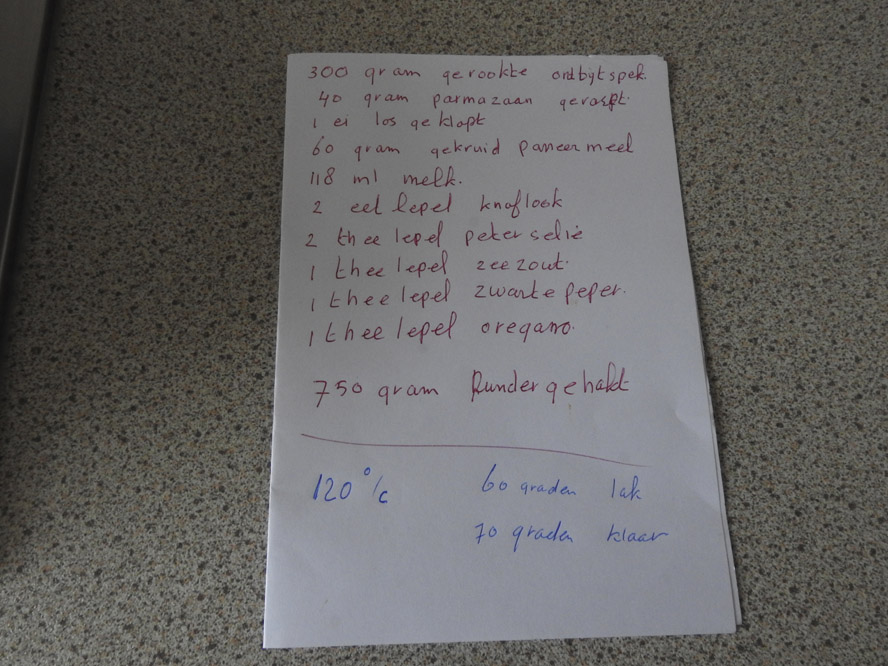 300 gram gerookte ontbijtspek.
40 gram parmazaan geraspt.
1 ei los geklopt
60 gram gekruid paneer meel
118 ml melk.
2 eet lepel knoflook
2 thee lepel peterselie
1 thee lepel zeezout.
1 thee lepel zwarte peper.
1 thee lepel oregano.
750 gram Rundergehakt
120°/c 60 graden lak
70 graden klaar